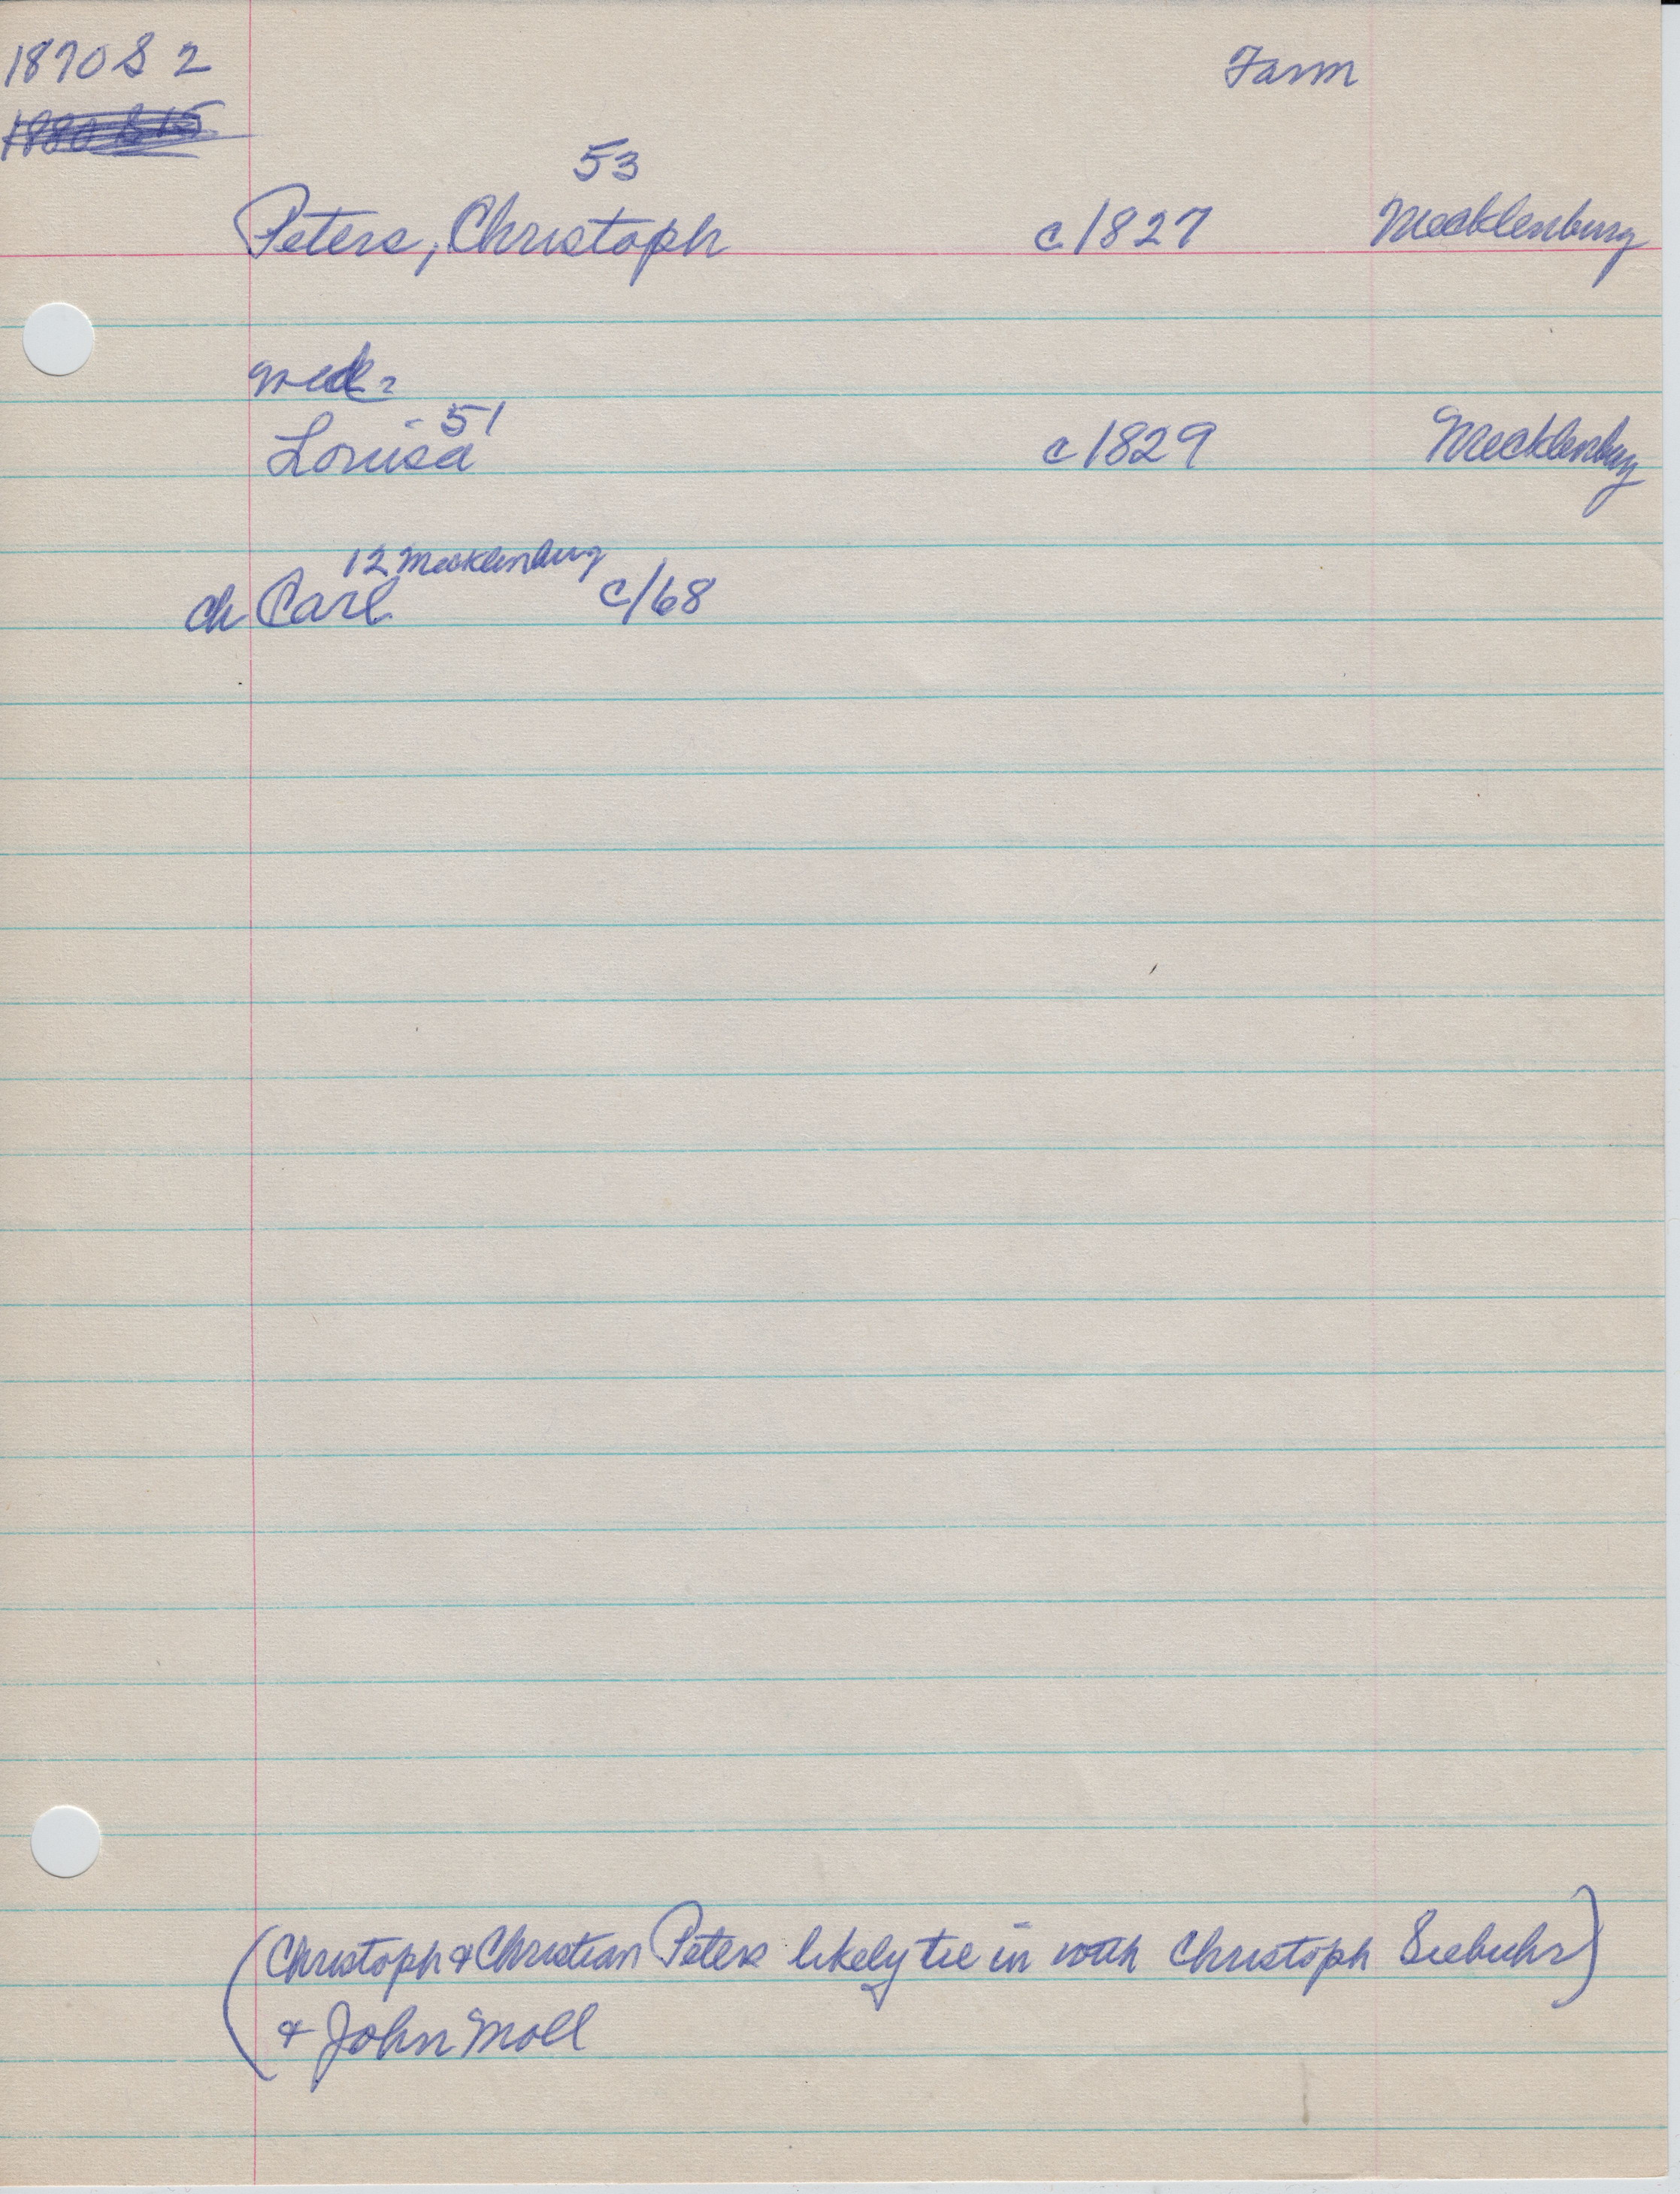 1870 S 2
Farm
1880 S 15
53
Peters, Christoph c 1827 Mecklenburg
- 51
Louisa c 1829 Mecklenburg
12 Mecklenburg
ch Carl c/68
(Christoph & Christian Peters likely tie in with Christoph Siebuhr)
& John Moll